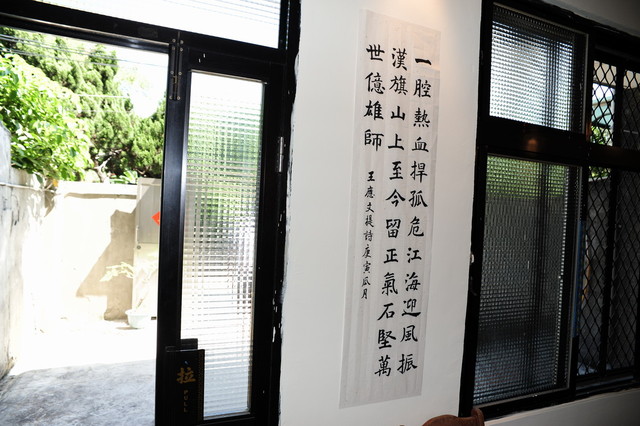 一腔熱血捍孤危江海迎風振
漢旗山上至今留正氣石堅萬
世億雄師
王應文提詩庚寅瓜月
拉
PULL